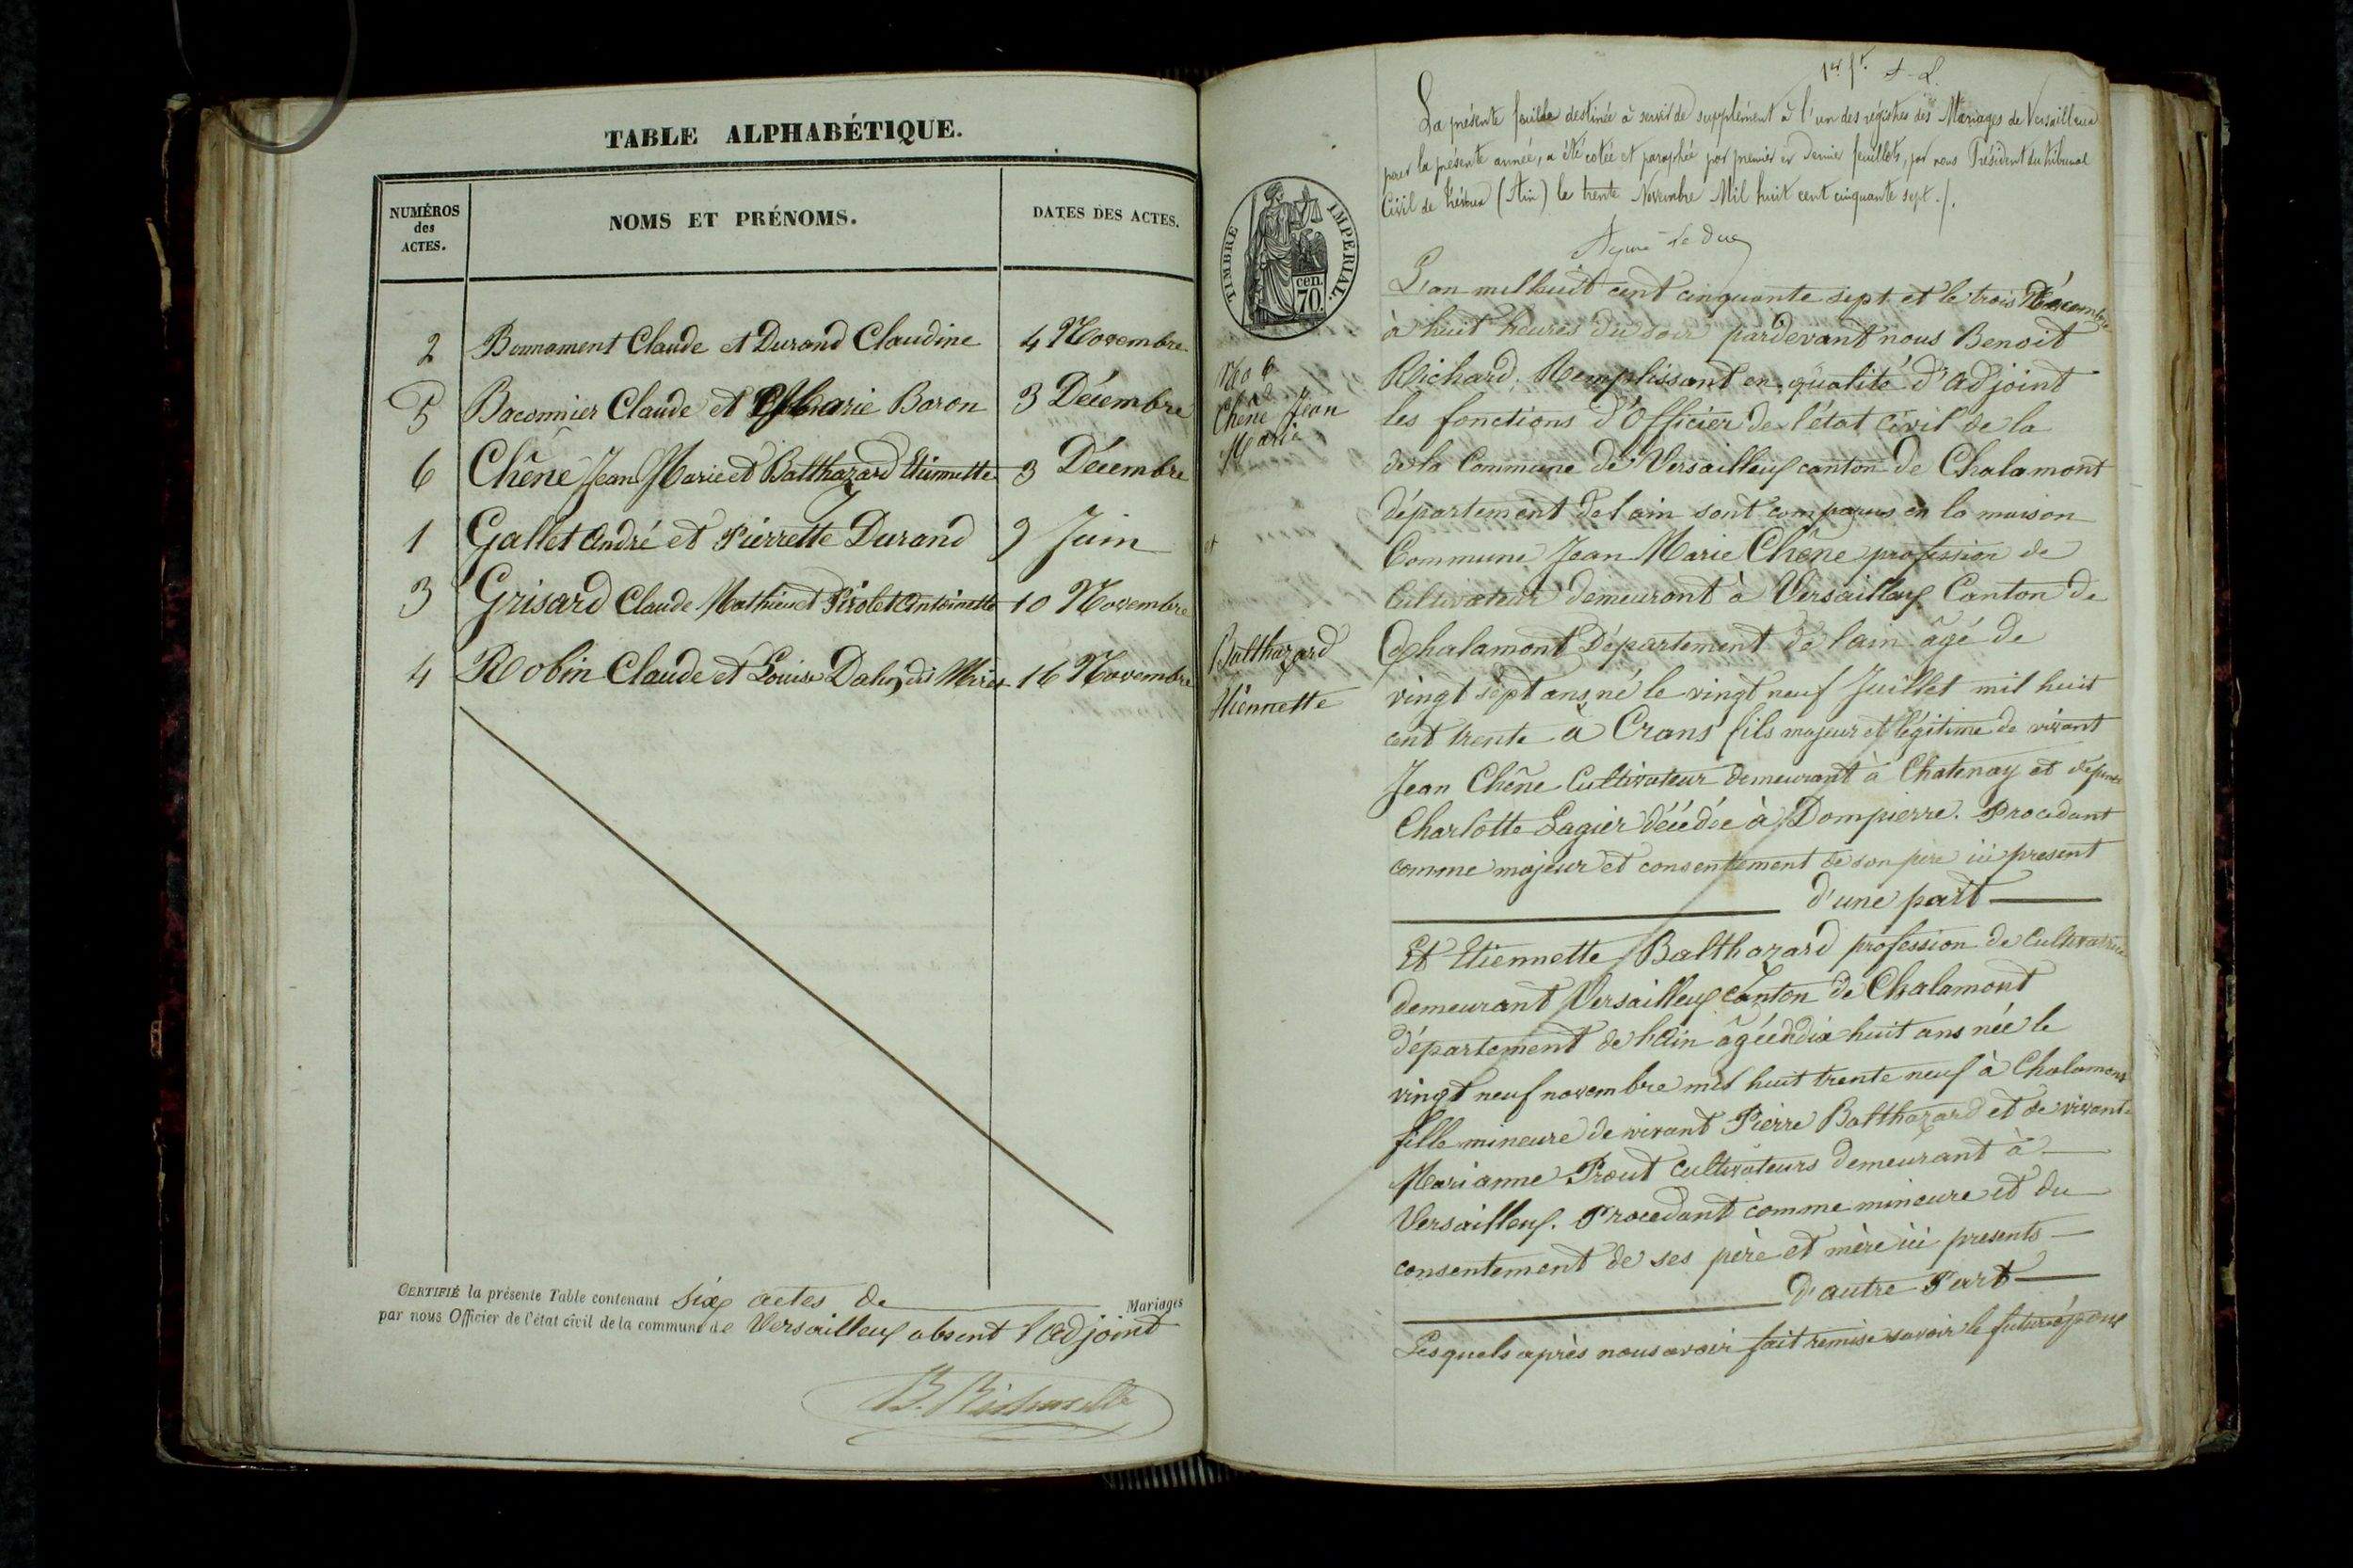 TABLE ALPHABÉTIQUE.
NUMÉROS
des
ACTES.
NOMS ET PRÉNOMS.
DATES DES ACTES.
2 Bonnament Claude et Durand Claudine 4 Novembre
5 Baconnier Claude et Marie Baron 3 Décembre
6 Chêne Jean Marie et Balthazard Etiennette 3 Décembre
1 Gallet André et Pierrette Durand 9 Juin
3 Grisard Claude Mathieu et Pirolet Antoinette 10 Novembre
4 Robin Claude et Louise Dahy dit 16 Novembre
CERTIFIÉ la présente Table contenant six actes de Mariages
par nous Officier de l'état civil de la commune de Versailleux absent l'adjoint
B. Richard
1er ft.
La présente feuille destinée à servir de supplément à l'un des régistres des Mariages de Versailleux
pour la présente année, a été cotée et paraphée par premier et dernier feuillets, par nous Président du tribunal
Civil de Trévoux (Ain) le trente Novembre Mil huit cent cinquante sept./.
Signé Le Duc
TIMBRE IMPERIAL.
cen.
70.
No 6
Chêne Jean
Marie
et
Balthazard
Etiennette
L'an mil huit cent cinquante sept et le trois Décembre
à huit heures du soir pardevant nous Benoit
Richard, Remplissant en qualité d'adjoint
les fonctions d'Officier de l'état civil de la
de la Commune de Versailleux canton de Chalamont
département de l'ain sont comparus en la maison
Commune Jean Marie Chêne profession de
Cultivateur demeurant à Versailleux Canton de
Chalamont Département de l'ain âgé de
vingt sept ans né le vingt neuf Juillet mil huit
cent trente à Crans fils majeur et légitime de vivant
Jean Chêne Cultivateur demeurant à Chatenay et défunte
Charlotte Lagier décédée à Dompierre. Procedant
comme majeur et consentement de son père ici present
d'une part
Et Etiennette Balthazard profession de Cultivatrice
demeurant Versailleux Canton de Chalamont
département de l'Ain âgée de dix huit ans née le
vingt neuf novembre mil huit trente neuf à Chalamont
fille mineure de vivant Pierre Balthazard et de vivante
Marianne Prout cultivateurs demeurant à
Versailleux. Procedant comme mineure et du
consentement de ses père et mère ici presents
D'autre Part
Lesquels après nous avoir fait remise savoir le futur époux